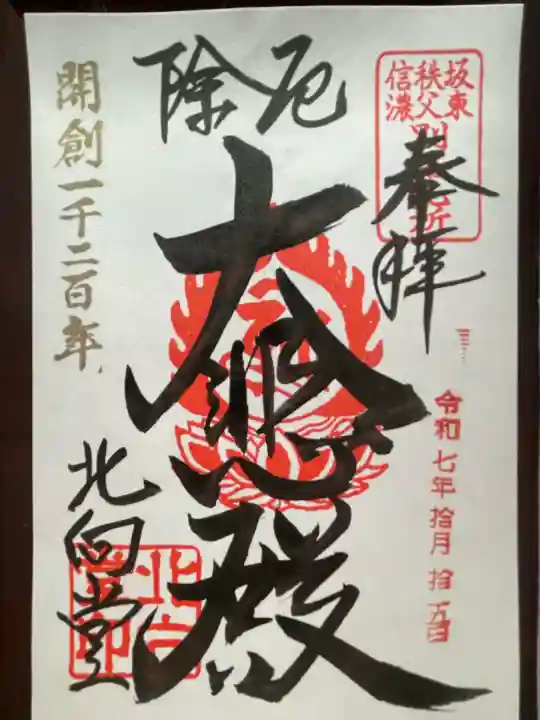 坂東
秩父
信濃
奉拝
令和七年拾月拾五日
厄除
大悲殿
開創一千二百年
北向堂